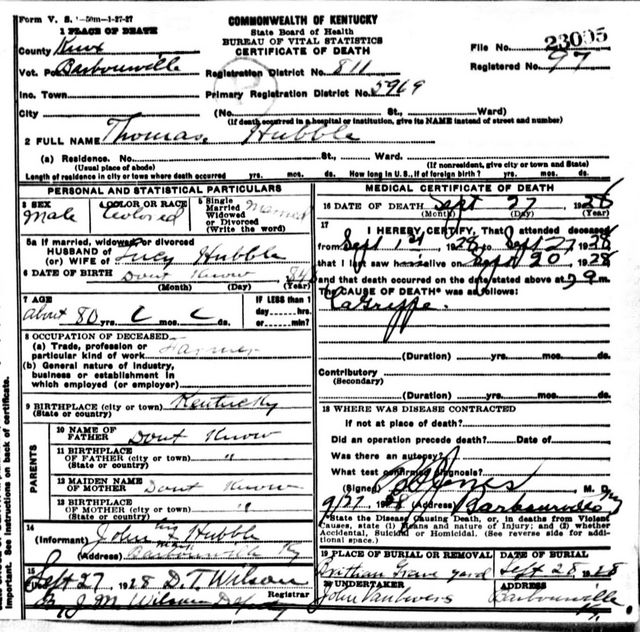 Form V. S. 50m-1-27-27
1 PLACE OF DEATH
COMMONWEALTH OF KENTUCKY
State Board of Health
BUREAU OF VITAL STATISTICS
CERTIFICATE OF DEATH
File No. 23005
Registered No. 97
County Knox
Vot. Pct Barbourville
Registration District No. 811
Inc. Town
Primary Registration District No. 5969
City (No. St., Ward)
(If death occurred in a hospital or institution, give its NAME instead of street and number)
2 FULL NAME Thomas Hubble
(a) Residence. No. St., Ward.
(Usual place of abode) (If nonresident, give city or town and State)
Length of residence in city or town where death occurred yrs. mos. ds. How long in U. S., if of foreign birth? yrs. mos. ds.
PERSONAL AND STATISTICAL PARTICULARS
3 SEX Male
4 COLOR OR RACE Colored
5 Single Married Widowed or Divorced (Write the word) Married
5a If married, widowed or divorced
HUSBAND OF
(or) WIFE of Lucy Hubble
6 DATE OF BIRTH Dont Know 84
(Month) (Day) (Year)
7 AGE
about 80 yrs. mos. ds.
IF LESS than 1 day hrs. or min?
8 OCCUPATION OF DECEASED
(a) Trade, profession or particular kind of work Farmer
(b) General nature of industry, business or establishment in which employed (or employer)
9 BIRTHPLACE (city or town) Kentucky
(State or country)
PARENTS
10 NAME OF FATHER Dont Know
11 BIRTHPLACE OF FATHER (city or town) "
(State or country)
12 MAIDEN NAME OF MOTHER Dont Know
13 BIRTHPLACE OF MOTHER (city or town) "
(State or country)
14
(Informant) John Hubble
(Address) Barbourville Ky
15
Sept 27 1928 D. T. Wilson
Registrar
By J M Wilson Deputy
MEDICAL CERTIFICATE OF DEATH
16 DATE OF DEATH Sept 27 1928
(Month) (Day) (Year)
17
I HEREBY CERTIFY, That I attended deceased
from Sept 1st 1928 to Sept 27 1928
that I last saw h alive on Sept 20 1928
and that death occurred on the date stated above at 9 m.
The CAUSE OF DEATH* was as follows:
LaGrippe
(Duration) yrs. mos. ds.
Contributory
(Secondary)
(Duration) yrs. mos. ds.
18 WHERE WAS DISEASE CONTRACTED
If not at place of death?
Did an operation precede death? Date of
Was there an autopsy?
What test confirmed diagnosis?
(Signed) Jones M. D.
9/27 1928 (Address) Barbourville Ky
*State the Disease Causing Death, or, in deaths from Violent Causes, state (1) Means and nature of Injury; and (2) whether Accidental, Suicidal or Homicidal. (See reverse side for additional space.)
19 PLACE OF BURIAL OR REMOVAL
Grave yard
DATE OF BURIAL
Sept 28 1928
20 UNDERTAKER
John
ADDRESS
Barbourville Ky.
important. See instructions on back of certificate.